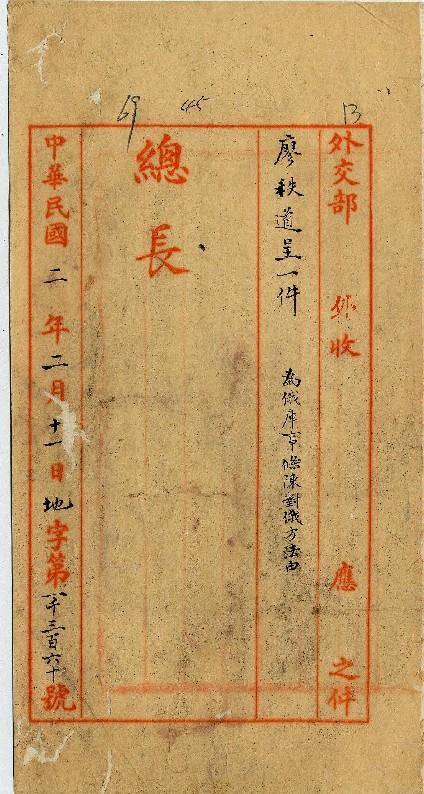 13
45
69
外交部 收 應 之件
廖秩道呈一件 為俄庫事條陳對俄方法由
總長
中華民國二年二月十一日地字第八千三百六十號